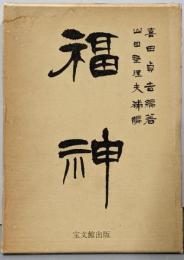 福神
喜田貞吉編著
山田野理夫補編
宝文館出版